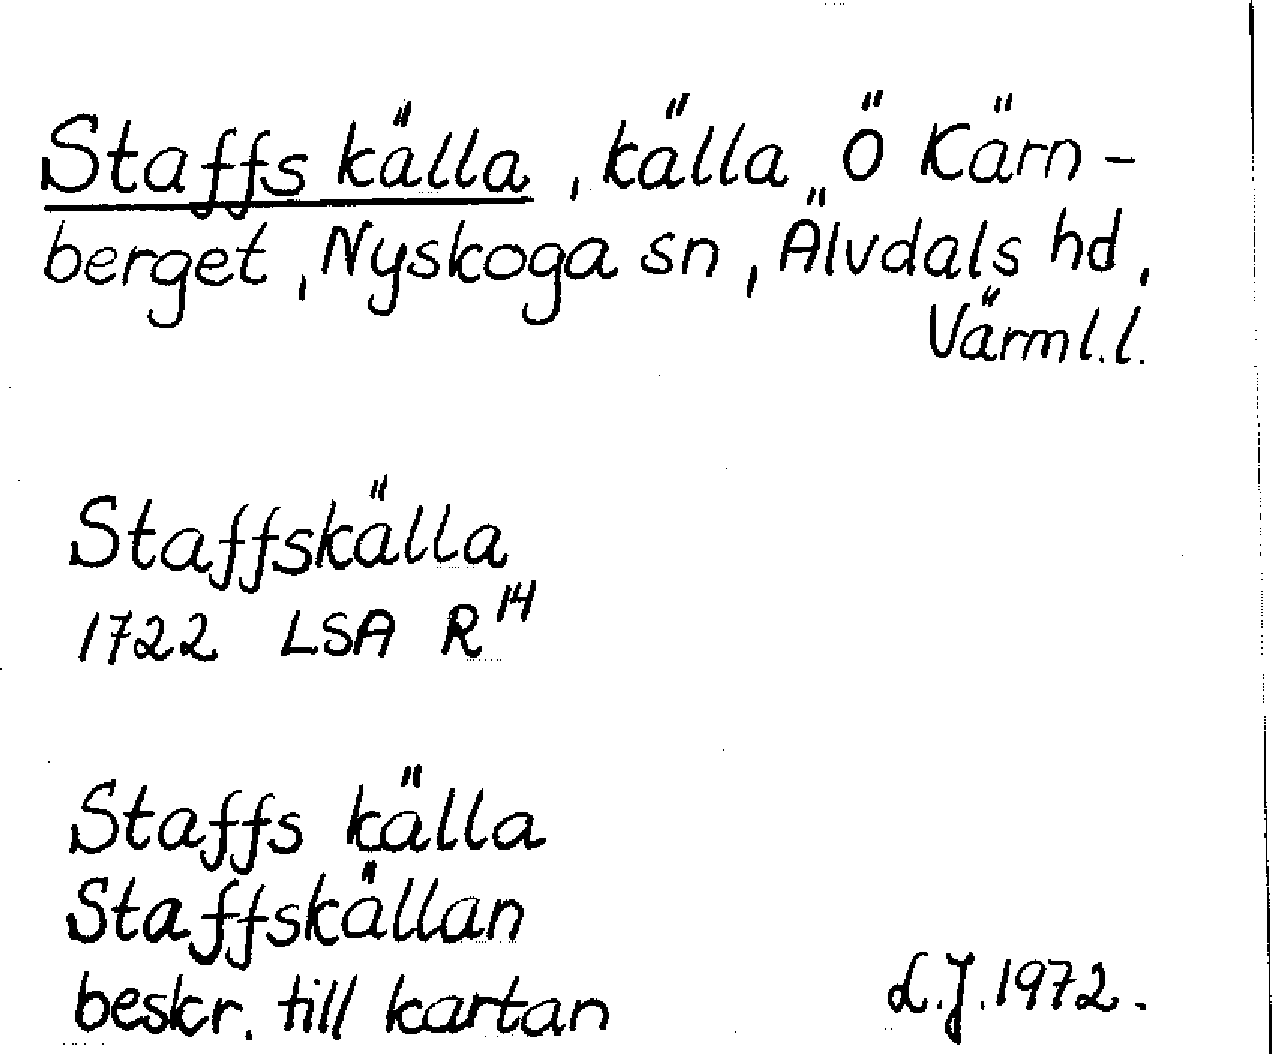 Staffs källa, källa Ö Kärn-
berget, Nyskoga sn, Älvdals hd,
Värml.l.
Staffskälla
1722 LSA R 14
Staffs källa
Staffskällan
beskr. till kartan
L.J.1972.